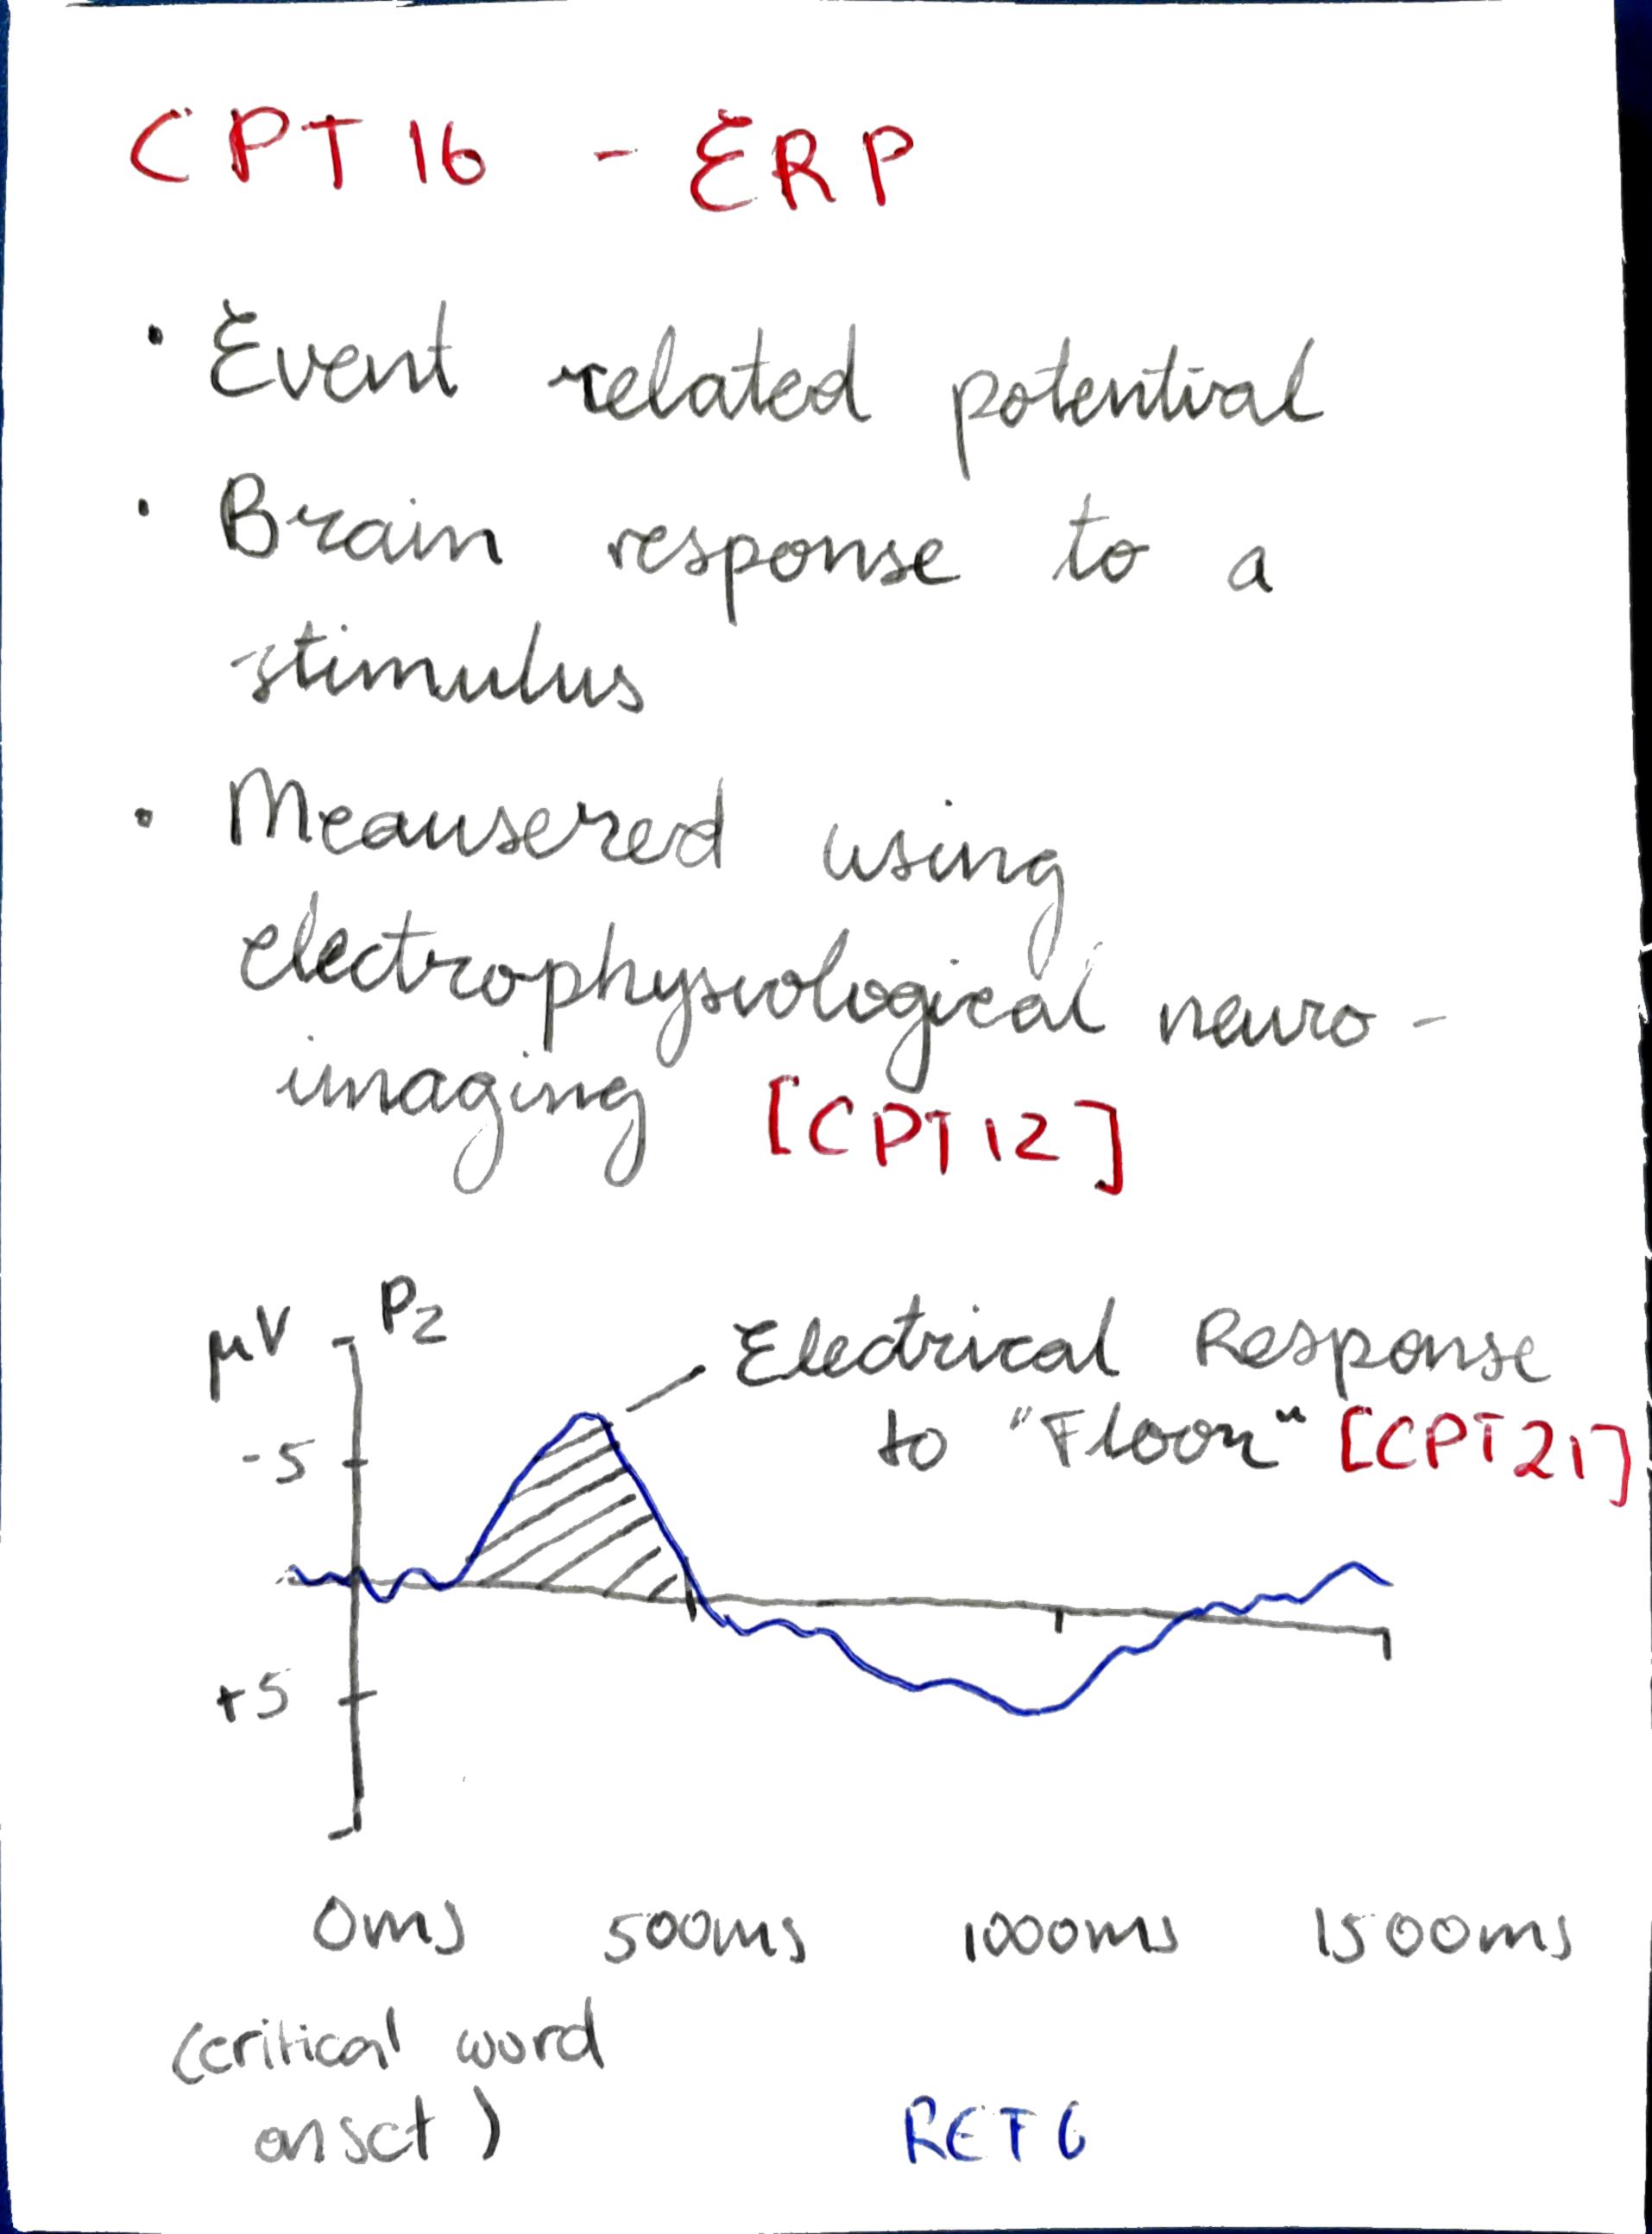 CPT16 - ERP
• Event related potential
• Brain response to a
stimulus
• Meausered using
electrophysiological neuro-
imaging [CPT12]
μV Pz
Electrical Response
to "Floor" [CPT21]
-5
+5
0ms 500ms 1000ms 1500ms
(critical word
onset)
REF6